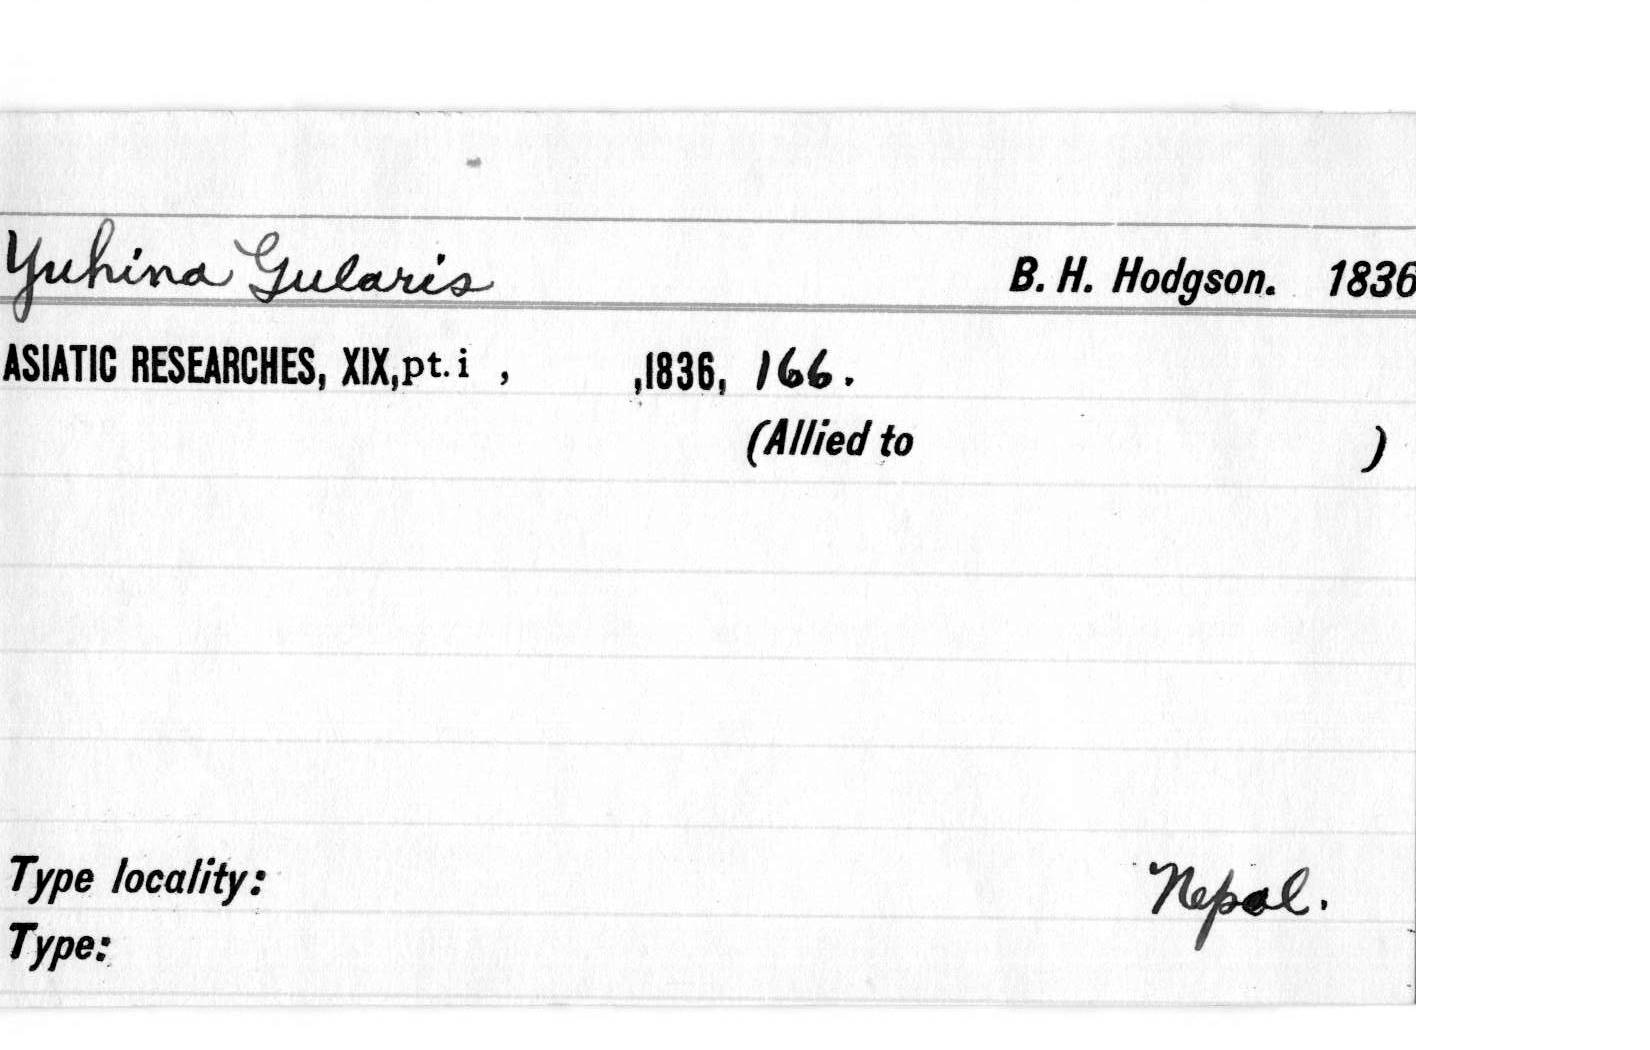 Yuhina Gularis B. H. Hodgson. 1836
ASIATIC RESEARCHES, XIX, pt. i , ,1836, 166.
(Allied to )
Type locality: Nepal.
Type: